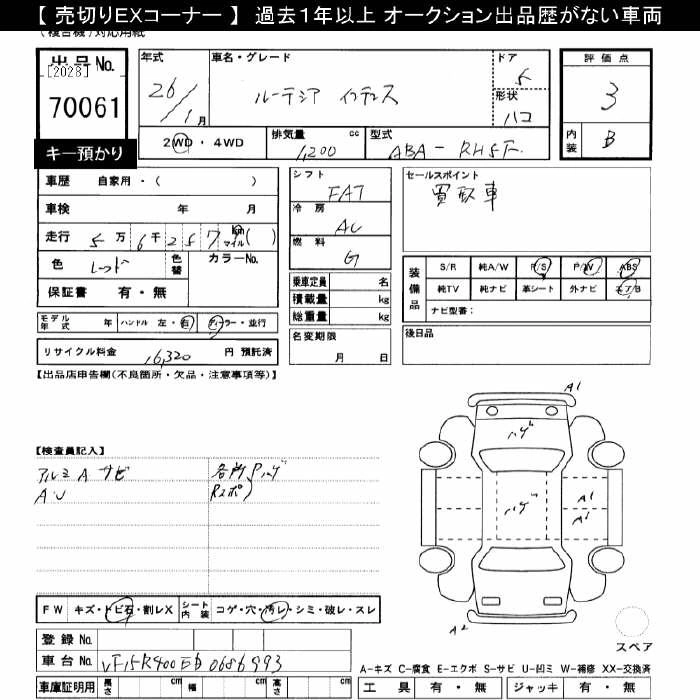 【 売切りEXコーナー 】 過去1年以上 オークション出品歴がない車両
(複合機)対応用紙
出品No.
[2028]
70061
キー預かり
年式
26/1月
車名・グレード
ルーテシア インテンス
ドア
5
形状
ハコ
評価点
3
内装
B
2WD・4WD
排気量
cc
1,200
型式
ABA-RH5F
車歴 自家用・( )
車検 年 月
走行 5万6千257 km マイル( )
色 レッド
色替
カラーNo.
保証書 有・無
シフト
FAT
冷房
AC
燃料
G
乗車定員 名
積載量 kg
総重量 kg
名変期限
月 日
セールスポイント
買取車
装備品
S/R 純A/W P/S P/W ABS
純TV 純ナビ 革シート 外ナビ エア/B
ナビ型番:
後日品
モデル年式 年 ハンドル 左・右 ディーラー・並行
リサイクル料金 16,320 円 預託済
【出品店申告欄(不良箇所・欠品・注意事項等)】
【検査員記入】
アルミ A サビ
各所 Pハゲ
AU
Rスポ
A1
ハゲ
ハゲ
A1
A1
A2
FW キズ・トビ石・割レX
シート内装 コゲ・穴・汚レ・シミ・破レ・スレ
登録No.
車台No. VF15R400EB0686993
車庫証明用 長さ cm 幅 cm 高さ cm
スペア
A-キズ C-腐食 E-エクボ S-サビ U-凹ミ W-補修 XX-交換済
工具 有・無 ジャッキ 有・無